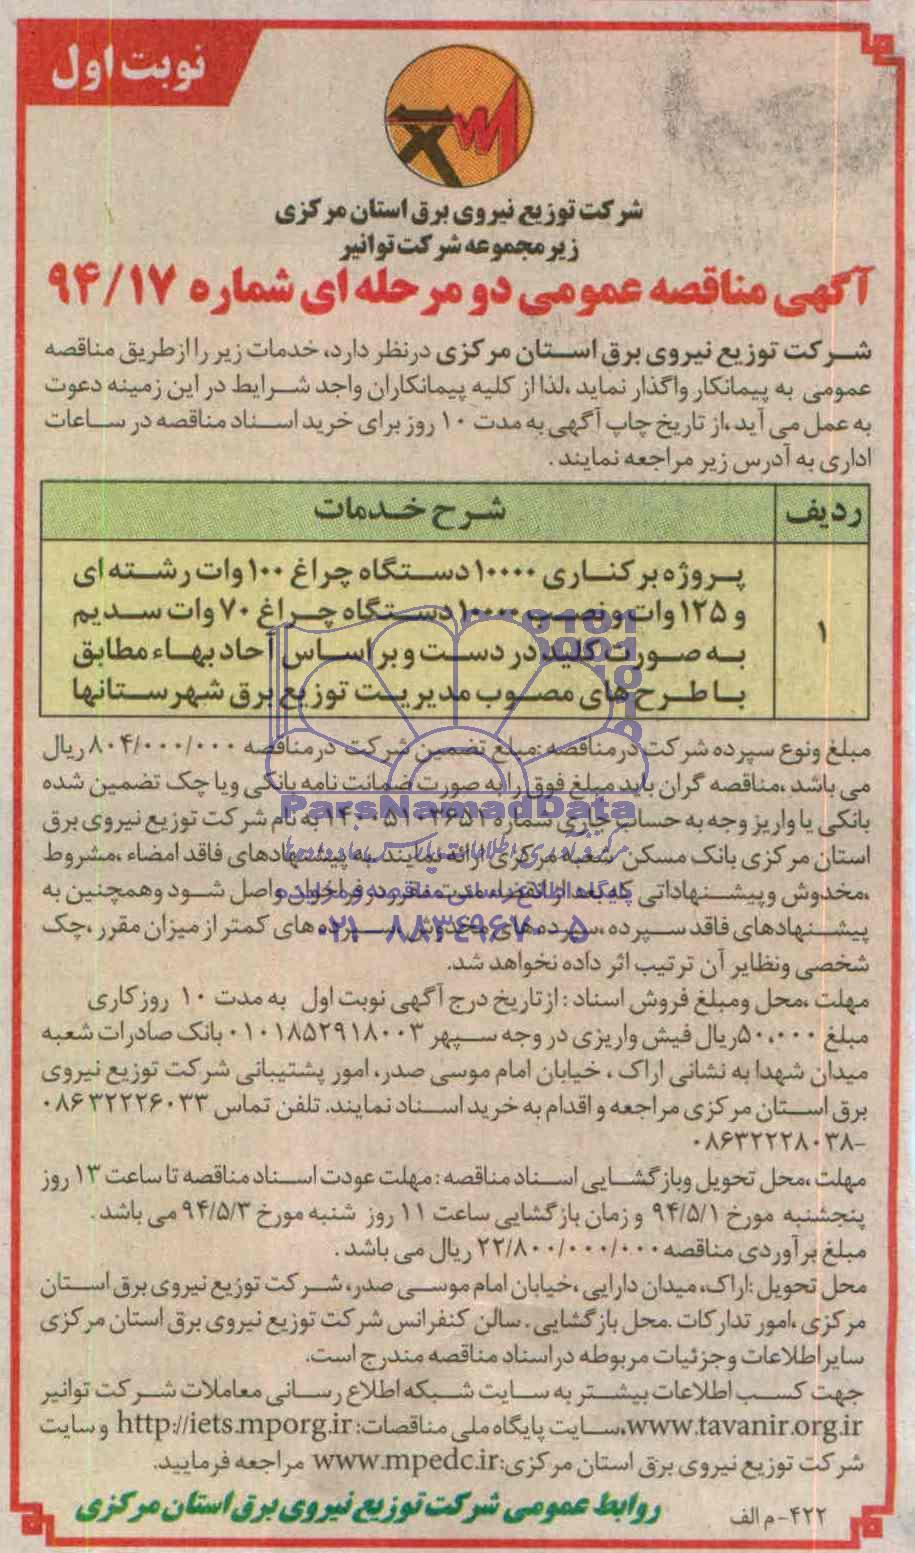 نوبت اول
شرکت توزیع نیروی برق استان مرکزی
زیر مجموعه شرکت توانیر
آگهی مناقصه عمومی دو مرحله ای شماره ۹۴/۱۷
شرکت توزیع نیروی برق استان مرکزی درنظر دارد، خدمات زیر را ازطریق مناقصه
عمومی به پیمانکار واگذار نماید ،لذا از کلیه پیمانکاران واجد شرایط در این زمینه دعوت
به عمل می آید ،از تاریخ چاپ آگهی به مدت ۱۰ روز برای خرید اسناد مناقصه در ساعات
اداری به آدرس زیر مراجعه نمایند .
ردیف شرح خدمات
پروژه بر کناری ۱۰۰۰۰ دستگاه چراغ ۱۰۰ وات رشته ای
و ۱۲۵ وات و نصب ۱۰۰۰۰ دستگاه چراغ ۷۰ وات سدیم
۱ به صورت کلید در دست و بر اساس آحاد بهاء مطابق
با طرح های مصوب مدیریت توزیع برق شهرستانها
مبلغ ونوع سپرده شرکت درمناقصه :مبلغ تضمین شرکت درمناقصه ۸۰۴/۰۰۰/۰۰۰ ریال
می باشد ،مناقصه گران باید مبلغ فوق رابه صورت ضمانت نامه بانکی ویا چک تضمین شده
ParsNamadData
بانکی یا واریز وجه به حساب جاری شماره ۱۴۰۰۵۱۰۳۶۵۱ به نام شرکت توزیع نیروی برق
استان مرکزی بانک مسکن شعبه مرکزی ارائه نمایند به پیشنهادهای فاقد امضاء ،مشروط
،مخدوش وپیشنهاداتی که بعد از انقضاء مدت مقرر در فراخوان واصل شود وهمچنین به
پایگاه اطلاع رسانی مناقصه و مزایده
پیشنهادهای فاقد سپرده ،سپرده های مخدوش ،سپرده های کمتر از میزان مقرر ،چک
۰۲۱-۸۸۳۴۹۶۷۰-۵
شخصی ونظایر آن ترتیب اثر داده نخواهد شد.
مهلت ،محل ومبلغ فروش اسناد : از تاریخ درج آگهی نوبت اول به مدت ۱۰ روز کاری
مبلغ ۵۰،۰۰۰ریال فیش واریزی در وجه سپهر ۰۱۰۱۸۵۲۹۱۸۰۰۳ بانک صادرات شعبه
میدان شهدا به نشانی اراک ، خیابان امام موسی صدر، امور پشتیبانی شرکت توزیع نیروی
برق استان مرکزی مراجعه و اقدام به خرید اسناد نمایند. تلفن تماس ۰۸۶۳۲۲۲۶۰۳۳
-۰۸۶۳۲۲۲۸۰۳۸
مهلت ،محل تحویل وبازگشایی اسناد مناقصه : مهلت عودت اسناد مناقصه تا ساعت ۱۳ روز
پنجشنبه مورخ ۹۴/۵/۱ و زمان بازگشایی ساعت ۱۱ روز شنبه مورخ ۹۴/۵/۳ می باشد .
مبلغ برآوردی مناقصه ۲۲/۸۰۰/۰۰۰/۰۰۰ ریال می باشد .
محل تحویل :اراک، میدان دارایی ،خیابان امام موسی صدر، شرکت توزیع نیروی برق استان
مرکزی ،امور تدارکات .محل بازگشایی . سالن کنفرانس شرکت توزیع نیروی برق استان مرکزی
سایر اطلاعات وجزئیات مربوطه در اسناد مناقصه مندرج است.
جهت کسب اطلاعات بیشتر به سایت شبکه اطلاع رسانی معاملات شرکت توانیر
www.tavanir.org.ir،سایت پایگاه ملی مناقصات: http://iets.mporg.ir و سایت
شرکت توزیع نیروی برق استان مرکزی:www.mpedc.ir مراجعه فرمایید.
۴۲۲- م الف روابط عمومی شرکت توزیع نیروی برق استان مرکزی